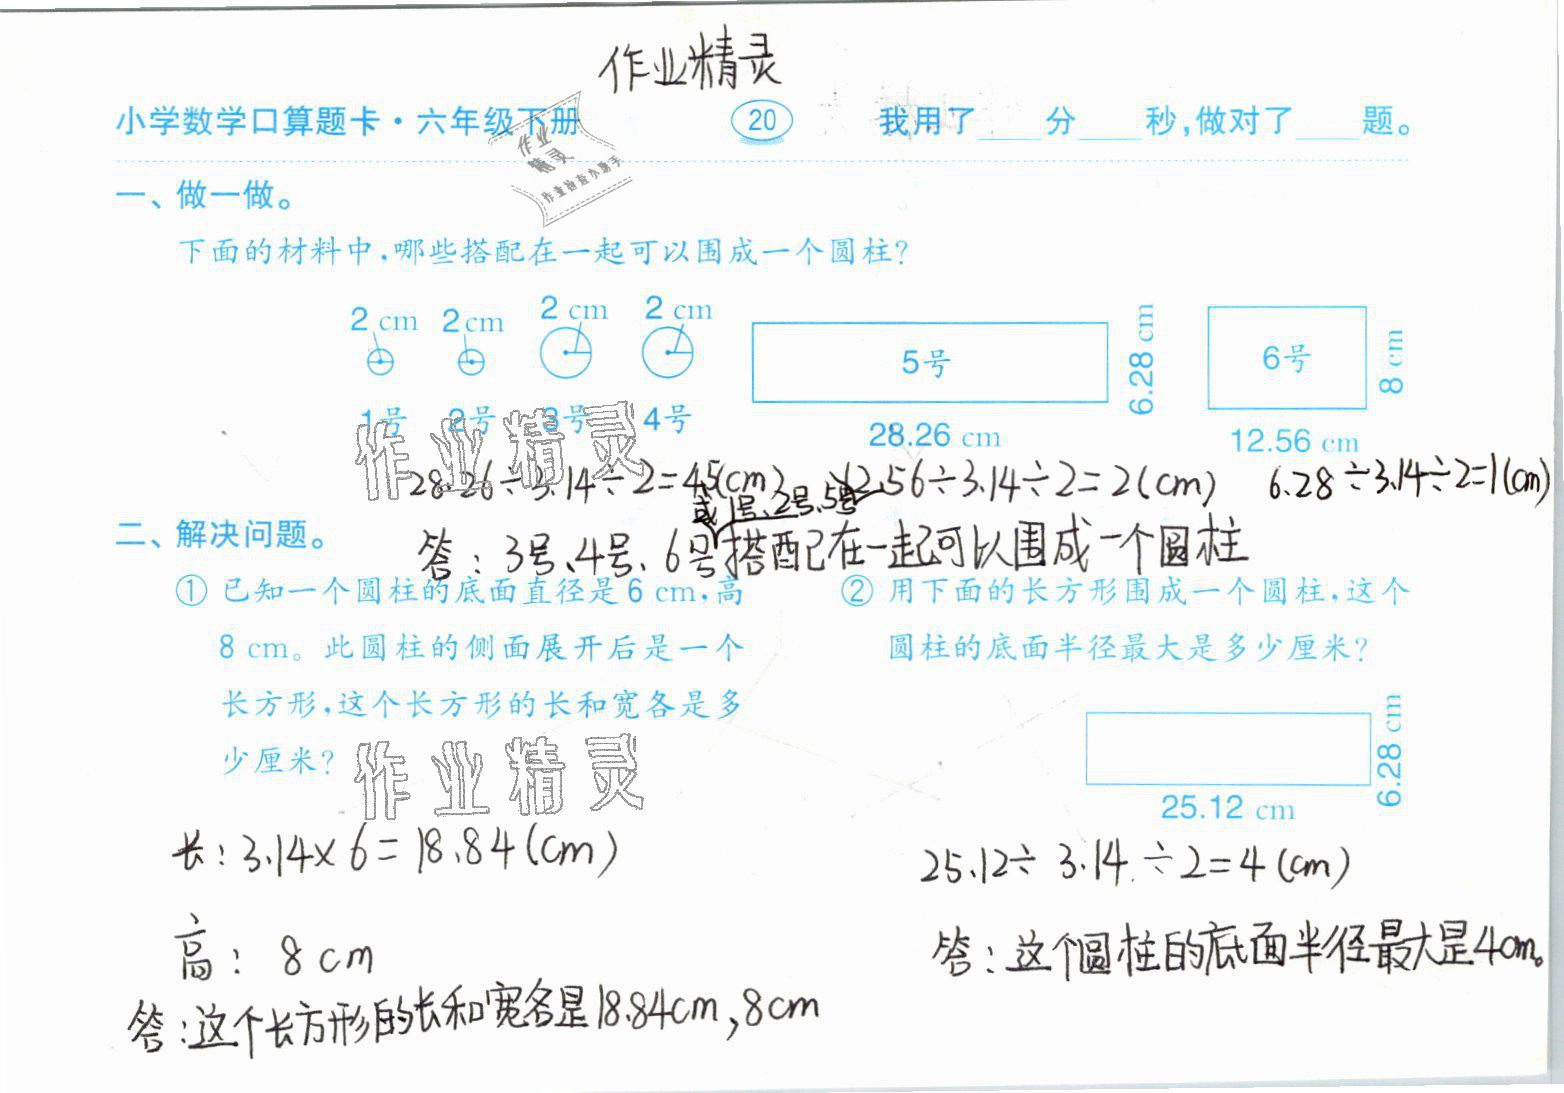 作业精灵
小学数学口算题卡·六年级下册 20 我用了____分____秒,做对了____题。
作业
精灵
作业检查小助手
一、做一做。
下面的材料中,哪些搭配在一起可以围成一个圆柱?
2 cm 2 cm 2 cm 2 cm
5号 6.28 cm 6号 8 cm
1号 2号 3号 4号 28.26 cm 12.56 cm
作业精灵
28.26÷3.14÷2=4.5(cm) 12.56÷3.14÷2=2(cm) 6.28÷3.14÷2=1(cm)
或1号、2号、5号
二、解决问题。
答:3号、4号、6号搭配在一起可以围成一个圆柱
① 已知一个圆柱的底面直径是6 cm,高
8 cm。此圆柱的侧面展开后是一个
长方形,这个长方形的长和宽各是多
少厘米?
作业精灵
长:3.14×6=18.84(cm)
高:8cm
答:这个长方形的长和宽各是18.84cm,8cm
② 用下面的长方形围成一个圆柱,这个
圆柱的底面半径最大是多少厘米?
6.28 cm
25.12 cm
25.12÷3.14÷2=4(cm)
答:这个圆柱的底面半径最大是4cm。